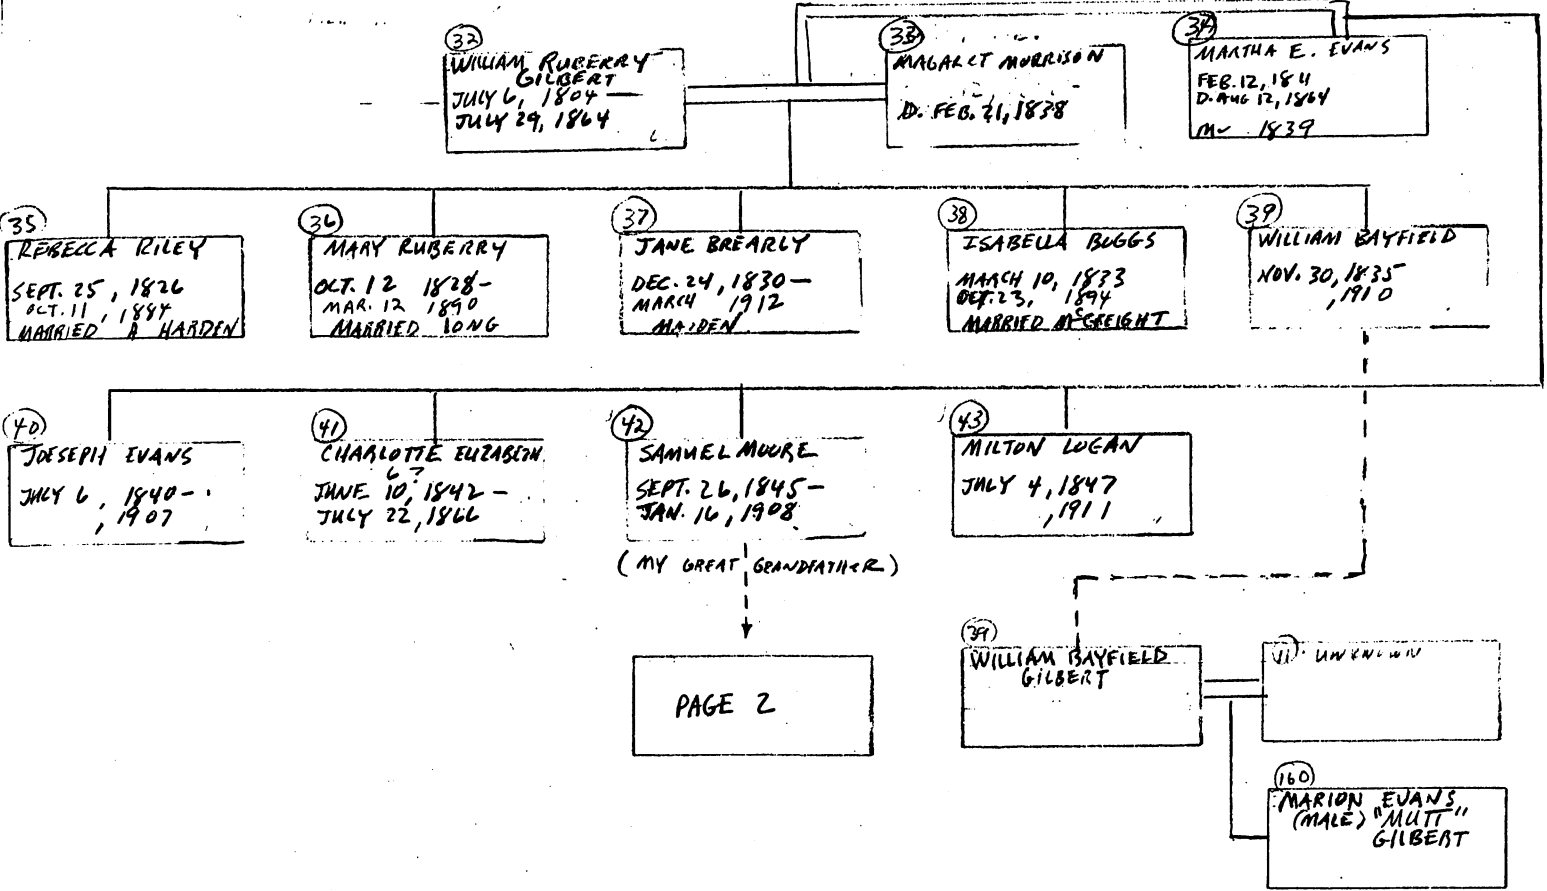 32
WILLIAM RUBERRY
GILBERT
JULY 6, 1804 —
JULY 29, 1864
33
MAGARET MORRISON
D. FEB. 21, 1838
34
MARTHA E. EVANS
FEB. 12, 1811
D. AUG 12, 1864
M 1839
35
REBECCA RILEY
SEPT. 25, 1826
OCT. 11, 1884
MARRIED A HARDEN
36
MARY RUBERRY
OCT. 12 1828 -
MAR. 12 1890
MARRIED LONG
37
JANE BREARLY
DEC. 24, 1830 —
MARCH 1912
MAIDEN
38
ISABELLA BUGGS
MARCH 10, 1833
OCT. 23, 1894
MARRIED McCREIGHT
39
WILLIAM BAYFIELD
NOV. 30, 1835
, 1910
40
JOESEPH EVANS
JULY 6, 1840 -
, 1907
41
CHARLOTTE ELIZABETH
6 ?
JUNE 10, 1842 -
JULY 22, 1866
42
SAMUEL MOORE
SEPT. 26, 1845 -
JAN. 16, 1908
(MY GREAT GRANDFATHER)
43
MILTON LOGAN
JULY 4, 1847
, 1911
PAGE 2
39
WILLIAM BAYFIELD
GILBERT
UNKNOWN
160
MARION EVANS
(MALE) "MUTT"
GILBERT